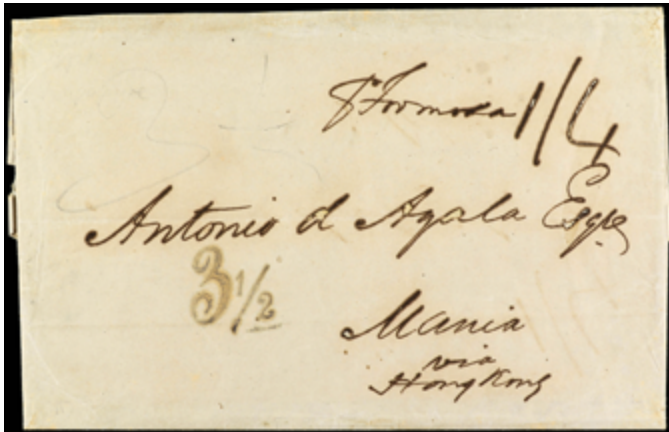 pr Formosa 1/4
Antonio d Ayala Esqre
3 1/2
Mania
via
Hong Kong